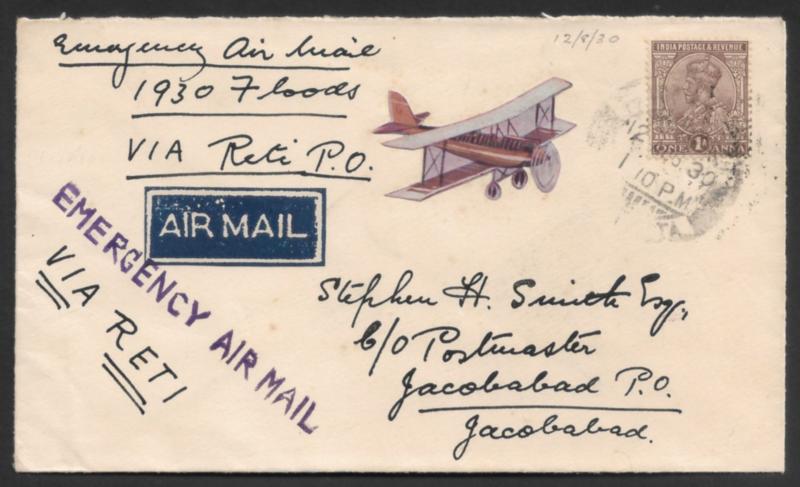 12/8/30
Emergency Air Mail
1930 Floods
VIA Reti P.O.
AIR MAIL
EMERGENCY AIR MAIL
VIA RETI
INDIA POSTAGE & REVENUE
1A
ONE ANNA
30
10 P.M
Stephen H. Smith Esq.,
C/O Postmaster
Jacobabad P.O.
Jacobabad.